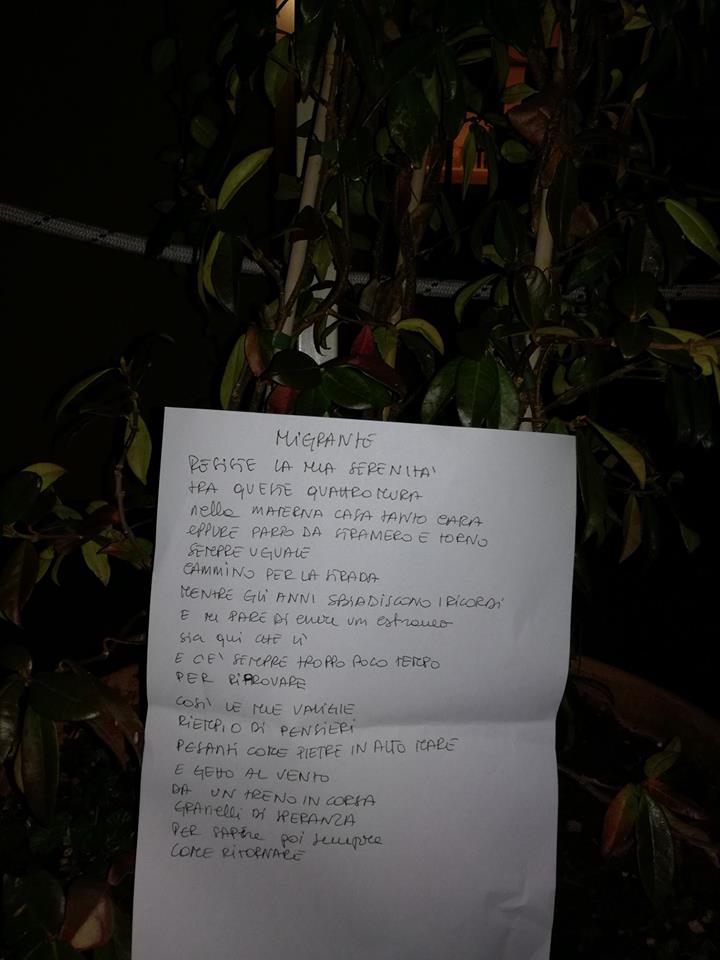 MIGRANTE
RESISTE LA MIA SERENITA'
TRA QUESTE QUATTRO MURA
nella MATERNA CASA TANTO CARA
EPPURE PARTO DA STRANIERO E TORNO
SEMPRE UGUALE
CAMMINO PER LA STRADA
MENTRE GLI ANNI SBIADISCONO I RICORDI
E MI PARE DI essere un estraneo
sia qui CHE LÌ
E C'E' SEMPRE TROPPO POCO TEMPO
PER RIPROVARE
COSÌ LE MIE VALIGIE
RIEMPIO DI PENSIERI
PESANTI COME PIETRE IN ALTO MARE
E GETTO AL VENTO
DA UN TRENO IN CORSA
GRANELLI DI SPERANZA
PER SAPERE poi sempre
COME RITORNARE